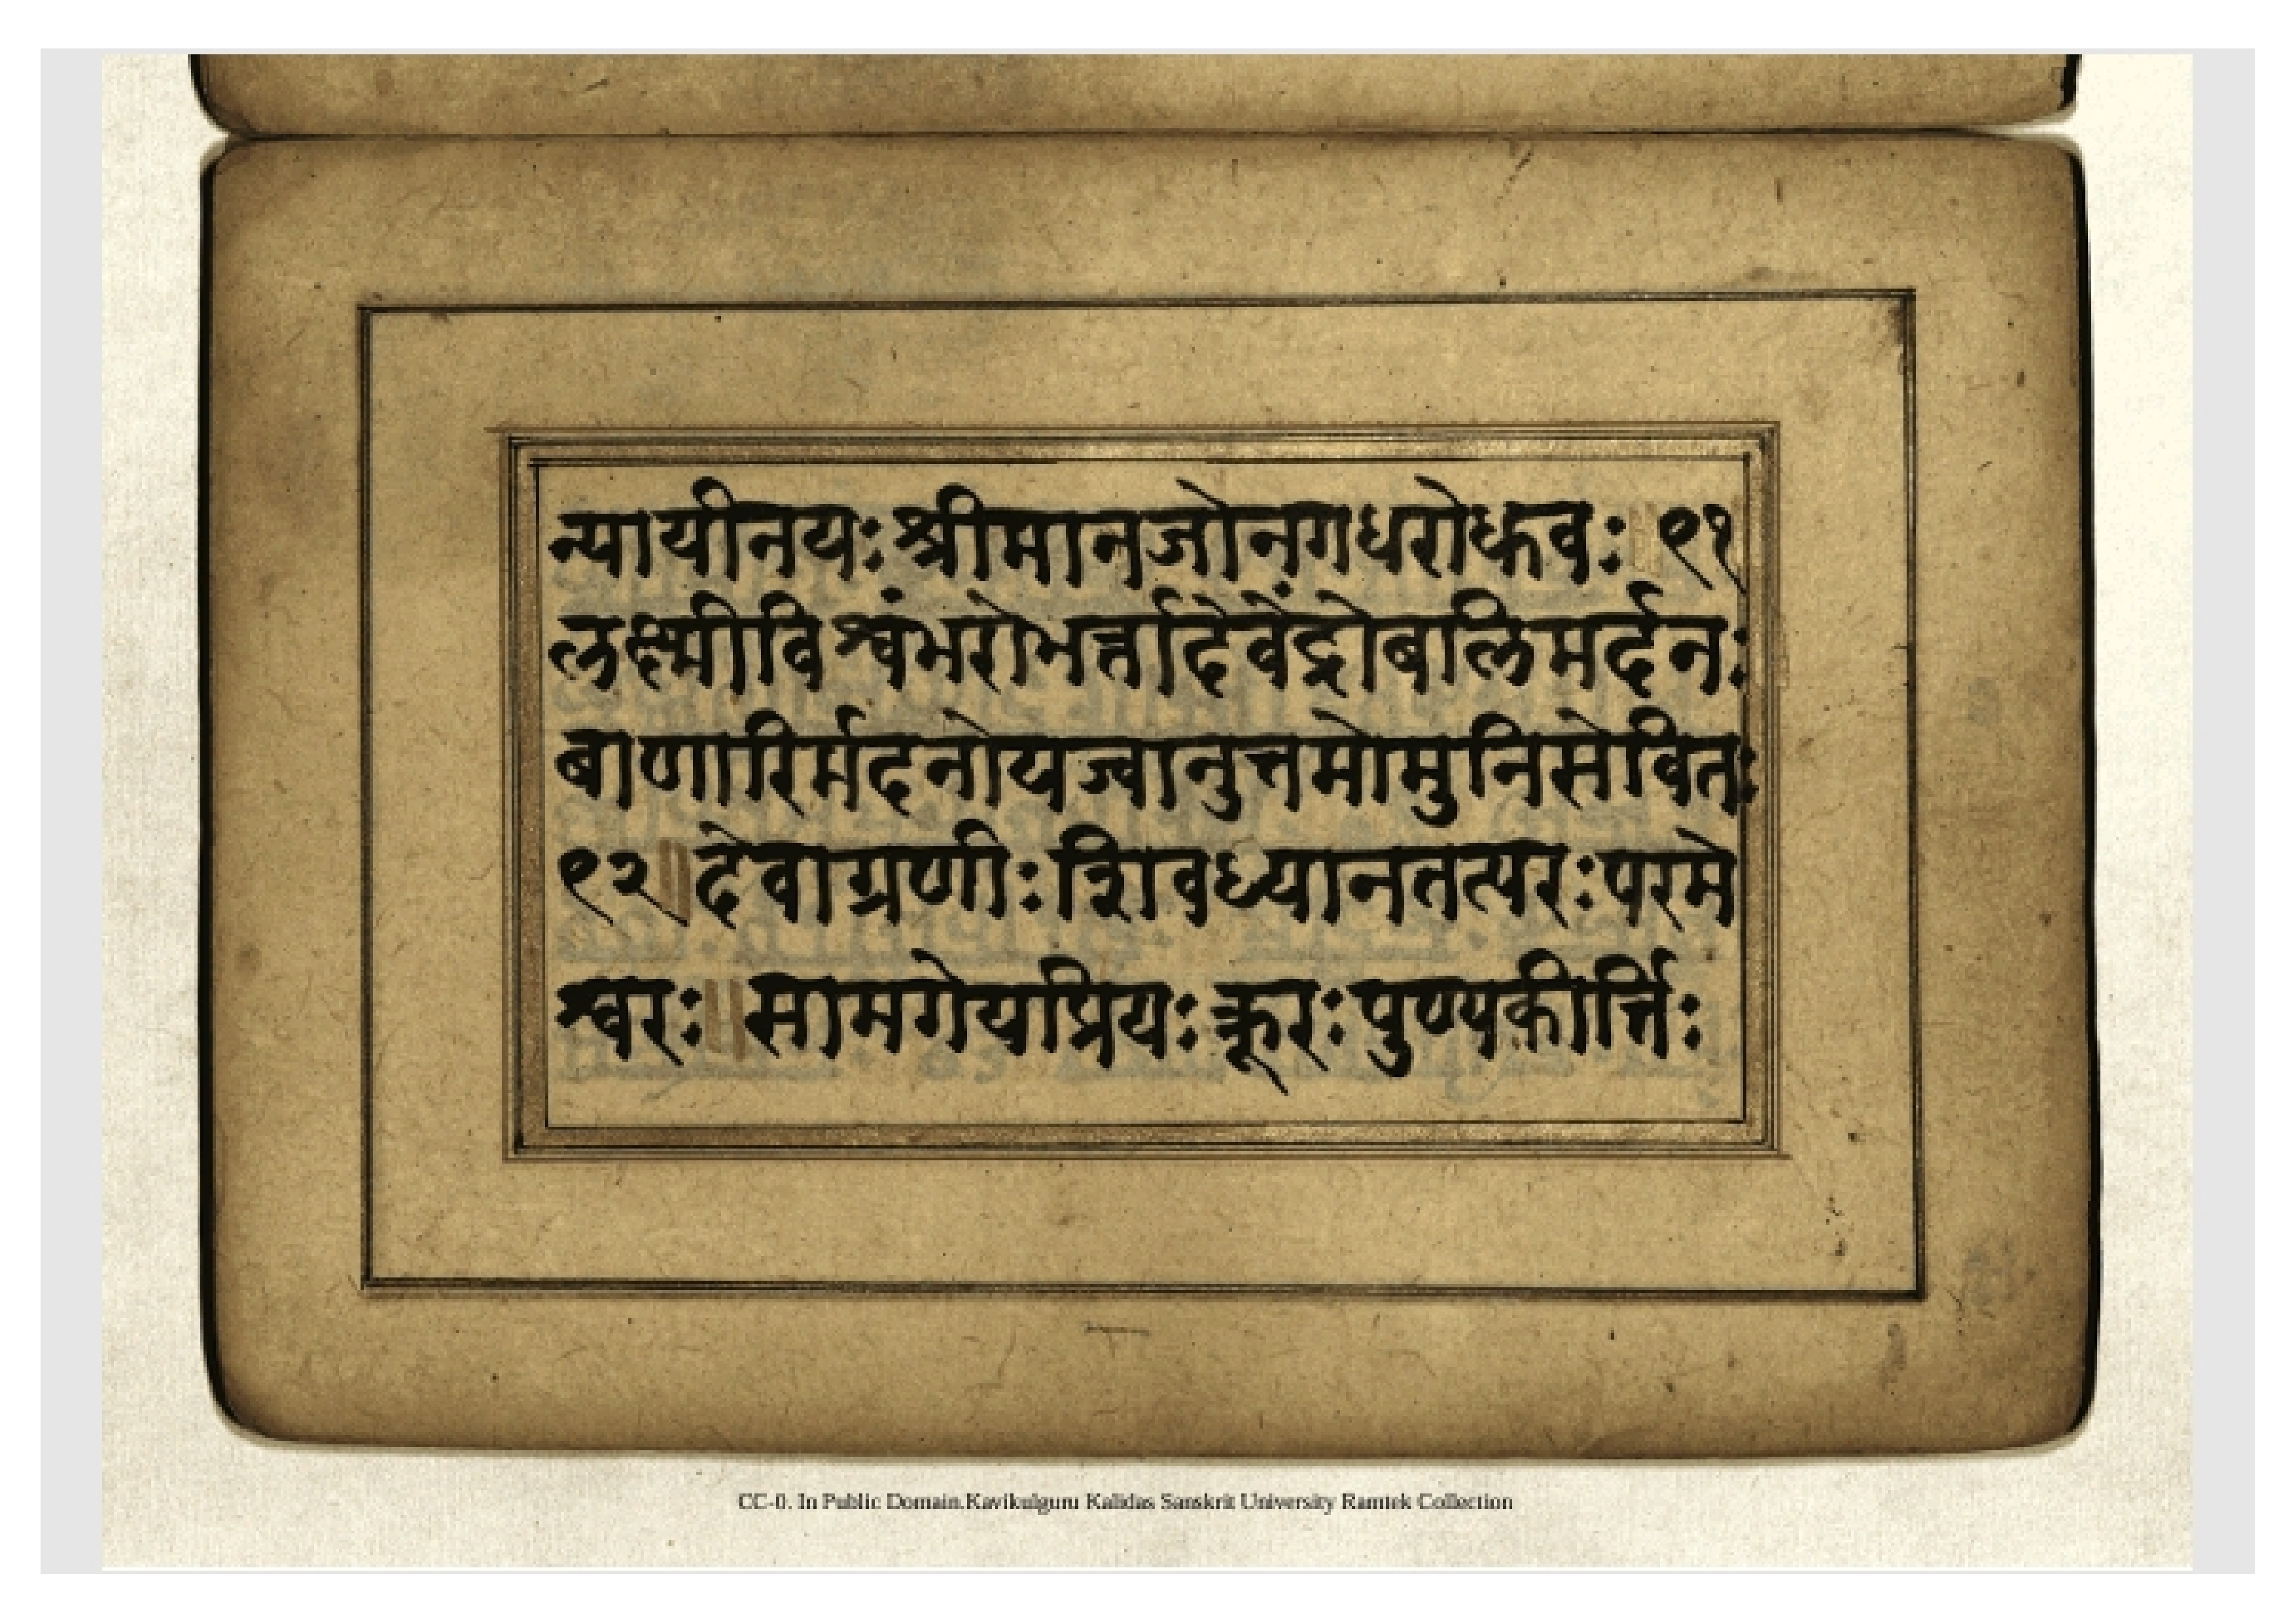 न्यायीनयःश्रीमानजोनगधरोध्रुवः ॥ ९१
लक्ष्मीविश्वंभरोभर्त्तादेवेंद्रोबलिमर्दनः
बाणारिर्मदनोयज्वानुत्तमोमुनिसेवितः
९२॥ देवाग्रणीःशिवध्यानतत्परःपरमे
श्वरः॥ सामगेयप्रियःक्रूरःपुण्यकीर्त्तिः
CC-0. In Public Domain.Kavikulguru Kalidas Sanskrit University Ramtek Collection